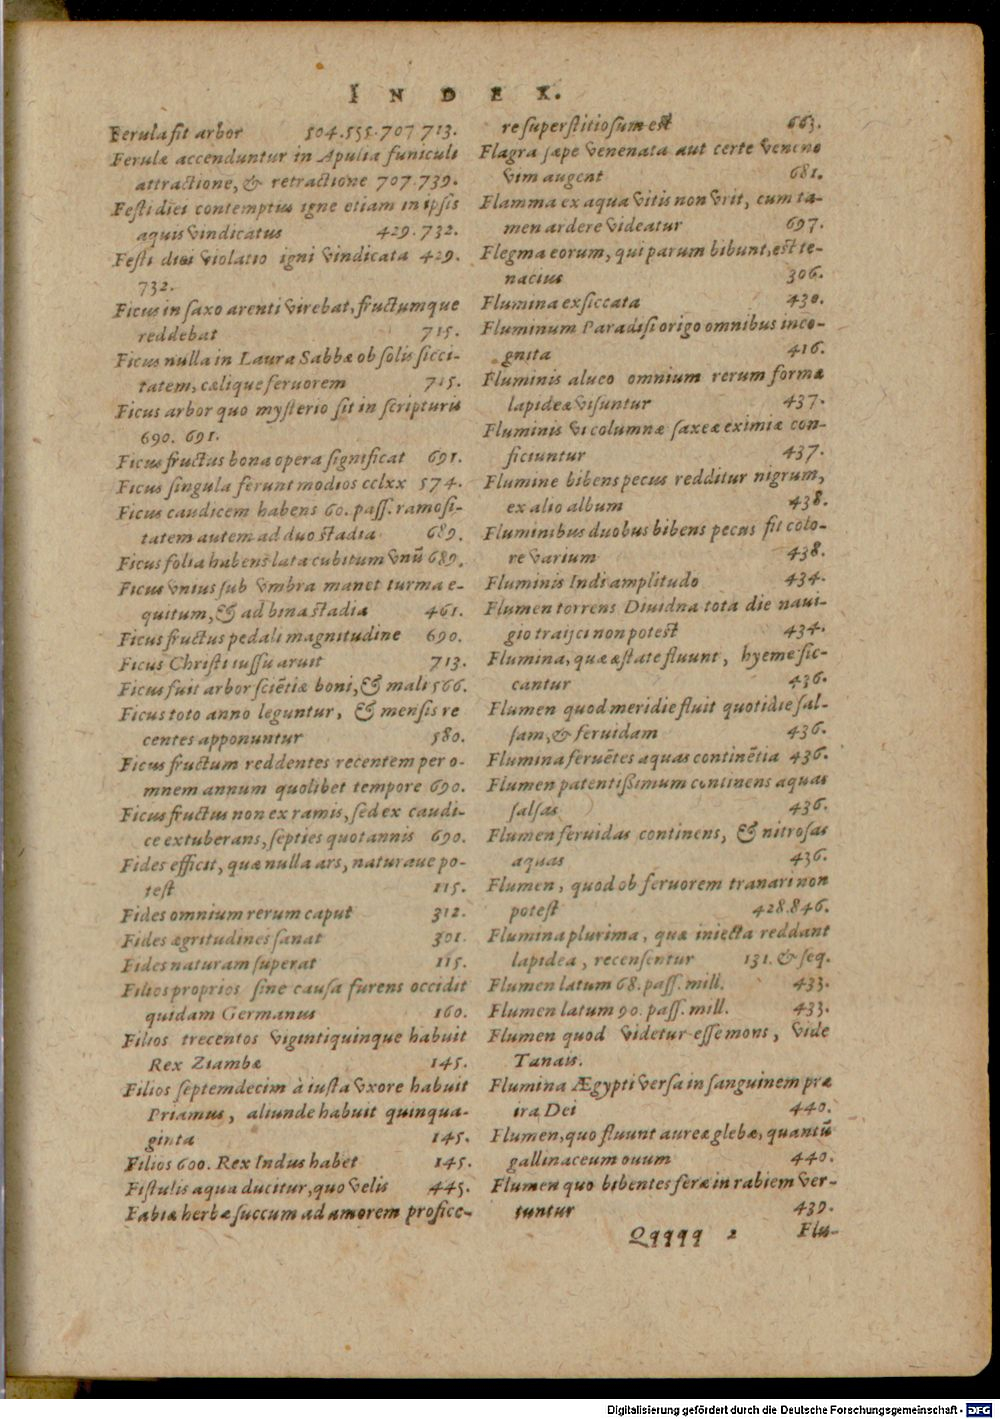 INDEX.
Ferula fit arbor 504.555.707 713.
Ferulæ accenduntur in Apulia funiculi
attractione, & retractione 707.739.
Festi diei contemptus igne etiam in ipsis
aquis vindicatus 429.732.
Festi diei violatio igni vindicata 429.
732.
Ficus in saxo arenti virebat, fructumque
reddebat 715.
Ficus nulla in Laura Sabbæ ob solis sicci-
tatem, cælique feruorem 715.
Ficus arbor quo mysterio sit in scripturis
690. 691.
Ficus fructus bona opera significat 691.
Ficus singula ferunt modios cclxx 574.
Ficus caudicem habens 60. pass. ramosi-
tatem autem ad duo stadia 689.
Ficus folia habens lata cubitum vnū 689.
Ficus vnius sub vmbra manet turma e-
quitum, & ad bina stadia 461.
Ficus fructus pedali magnitudine 690.
Ficus Christi iussu aruit 713.
Ficus fuit arbor sciētiæ boni, & mali 566.
Ficus toto anno leguntur, & mensis re
centes apponuntur 580.
Ficus fructum reddentes recentem per o-
mnem annum quolibet tempore 690.
Ficus fructus non ex ramis, sed ex caudi-
ce extuberans, septies quotannis 690.
Fides efficit, quæ nulla ars, naturaue po-
test 115.
Fides omnium rerum caput 312.
Fides ægritudines sanat 301.
Fides naturam superat 115.
Filios proprios sine causa furens occidit
quidam Germanus 160.
Filios trecentos vigintiquinque habuit
Rex Ziambæ 145.
Filios septemdecim à iusta vxore habuit
Priamus, aliunde habuit quinqua-
ginta 145.
Filios 600. Rex Indus habet 145.
Fistulis aqua ducitur, quo velis 445.
Fabiæ herbæ succum ad amorem profice-
re superstitiosum est 663.
Flagra sæpe venenata aut certe veneno
vim augent 681.
Flamma ex aqua vitis non vrit, cum ta-
men ardere videatur 697.
Flegma eorum, qui parum bibunt, est te-
nacius 306.
Flumina exsiccata 430.
Fluminum Paradisi origo omnibus inco-
gnita 416.
Fluminis alueo omnium rerum formæ
lapideæ visuntur 437.
Fluminis vi columnæ saxeæ eximiæ con-
ficiuntur 437.
Flumine bibens pecus redditur nigrum,
ex alio album 438.
Fluminibus duobus bibens pecus fit colo-
re varium 438.
Fluminis Indi amplitudo 434.
Flumen torrens Diuidna tota die naui-
gio traijci non potest 434.
Flumina, quæ æstate fluunt, hyeme sic-
cantur 436.
Flumen quod meridie fluit quotidie sal-
sam, & feruidam 436.
Flumina feruētes aquas continētia 436.
Flumen patentissimum continens aquas
salsas 436.
Flumen feruidas continens, & nitrosas
aquas 436.
Flumen, quod ob feruorem tranari non
potest 428.846.
Flumina plurima, quæ iniecta reddant
lapidea, recensentur 131. & seq.
Flumen latum 68. pass. mill. 433.
Flumen latum 90. pass. mill. 433.
Flumen quod videtur esse mons, vide
Tanais.
Flumina Ægypti versa in sanguinem præ
ira Dei 440.
Flumen, quo fluunt aureæ glebæ, quantū
gallinaceum ouum 440.
Flumen quo bibentes feræ in rabiem ver-
tuntur 439.
Qqqqq 2 Flu-
Digitalisierung gefördert durch die Deutsche Forschungsgemeinschaft - DFG